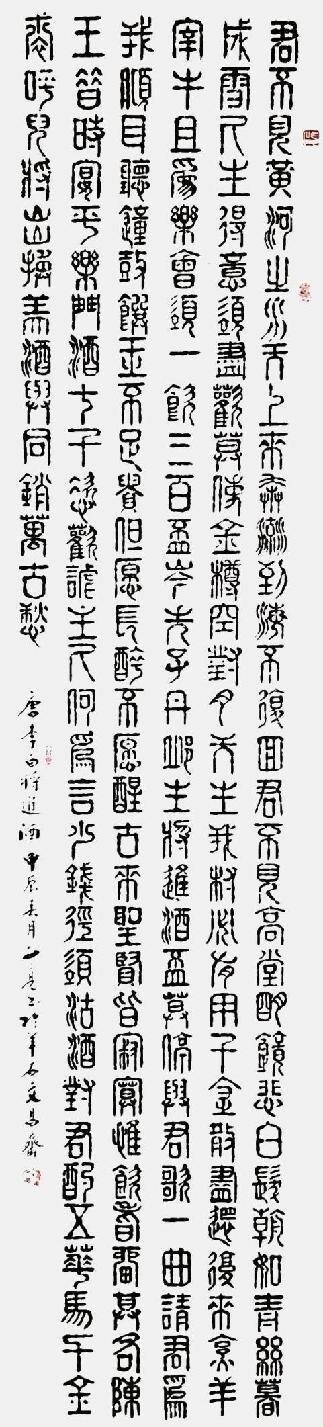 君不見黃河之水天上來奔流到海不復回君不見高堂明鏡悲白髮朝如青絲暮
成雪人生得意須盡歡莫使金樽空對月天生我材必有用千金散盡還復來烹羊
宰牛且為樂會須一飲三百盃岑夫子丹邱生將進酒盃莫停與君歌一曲請君為
我傾耳聽鐘鼓饌玉不足貴但愿長醉不愿醒古來聖賢皆寂寞惟飲者留其名陳
王昔時宴平樂鬥酒十千恣歡謔主人何為言少錢徑須沽酒對君酌五華馬千金
裘呼兒將出換美酒與同銷萬古愁
唐李白將進酒甲辰